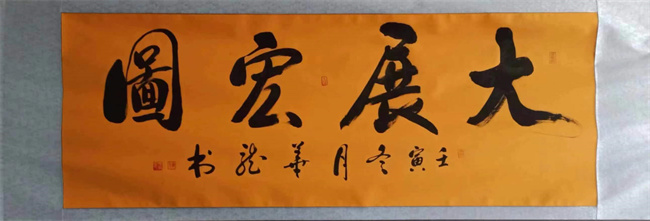 大展宏圖
壬寅冬月華龍书